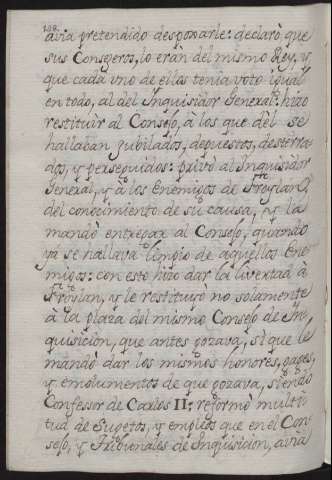 128.
avia pretendido despojarle: declarò que
sus Consegeros, lo eran del mismo Rey, y
que cada uno de ellos tenia voto igual
en todo, al del Inquisidor General: hizo
restituir al Consejo, à los que del se
hallaban jubilados, depuestos, desterra-
dos, y perseguidos: privò al Inquisidor
General, y à los Enemigos de Froylan,
del conocimiento de su causa, y la
mandò entregar al Consejo, quando
yà se hallava limpio de aquellos Ene-
migos: con esto hizo dar la libertad à
Froylan, y le restituyò no solamente
à la plaza del mismo Consejo de In-
quisicion, que antes gozava, sì que le
mandò dar los mismos honores, gages,
y emolumentos de que gozava, siendo
Confessor de Carlos II: reformò multi-
tud de Sugetos, y empleos que en el Con-
sejo, y Tribunales de Inquisicion, avia